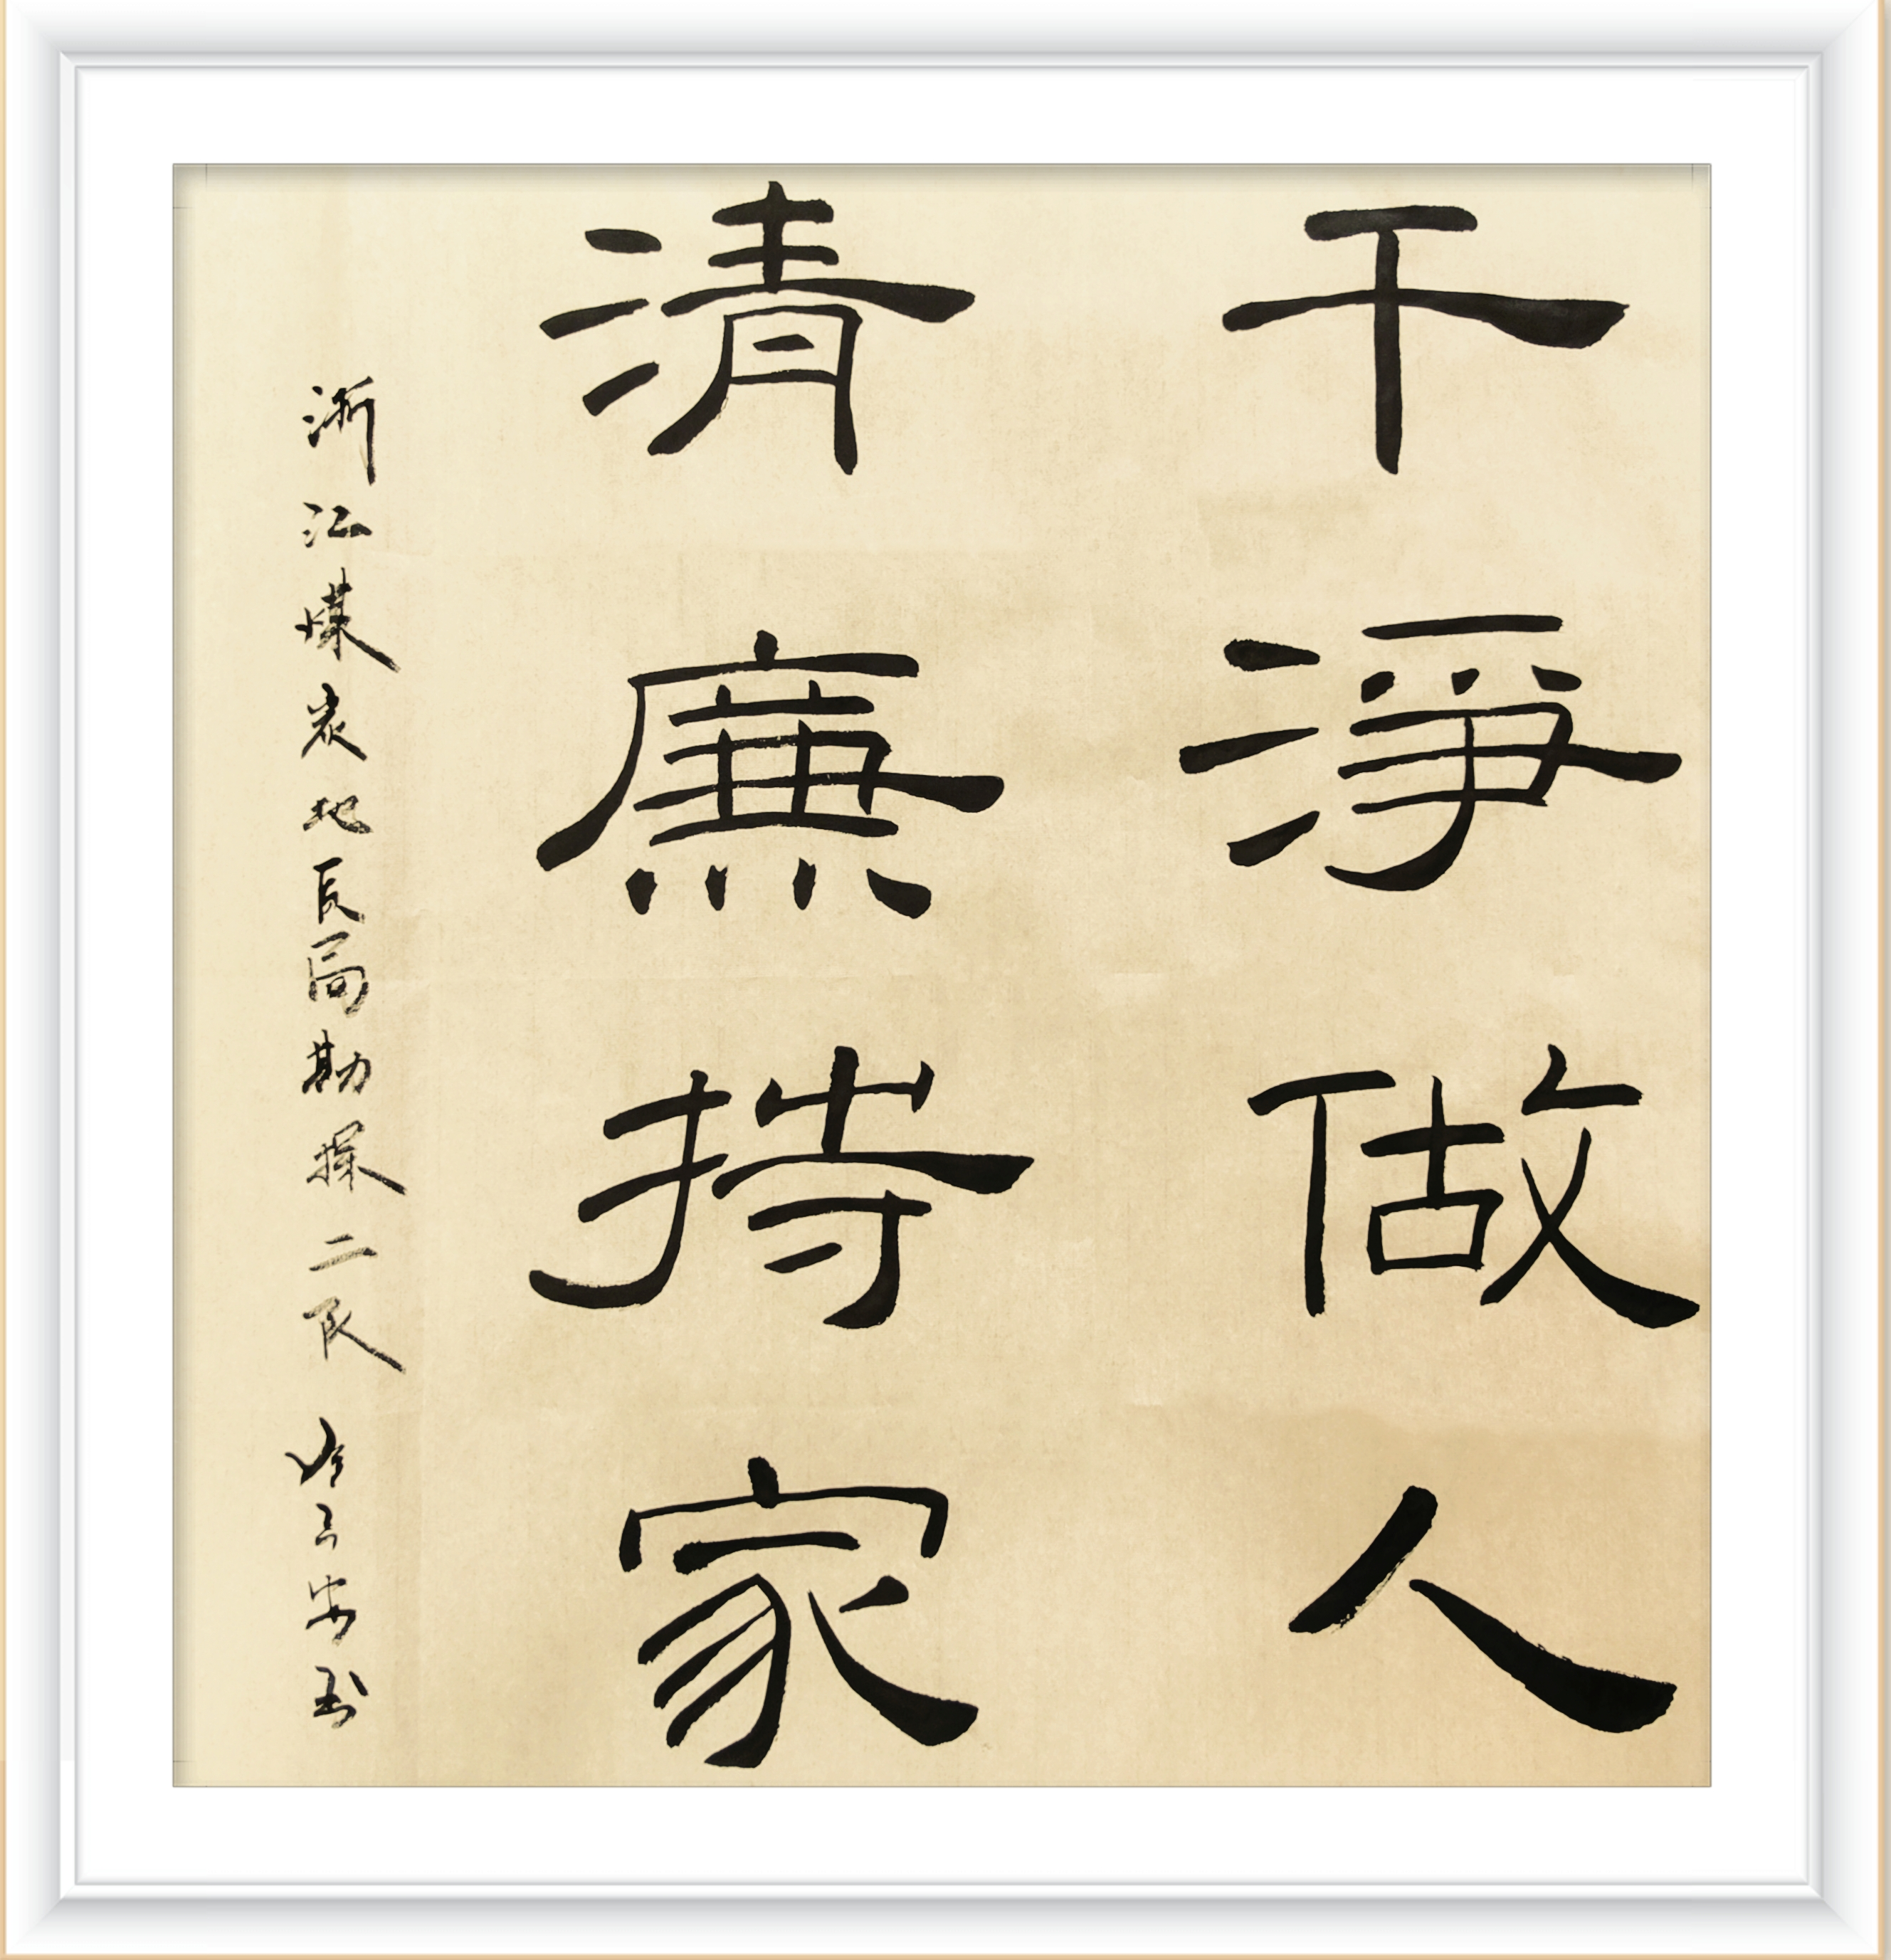 干淨做人
清廉持家
浙江煤炭地质局勘探二队 书